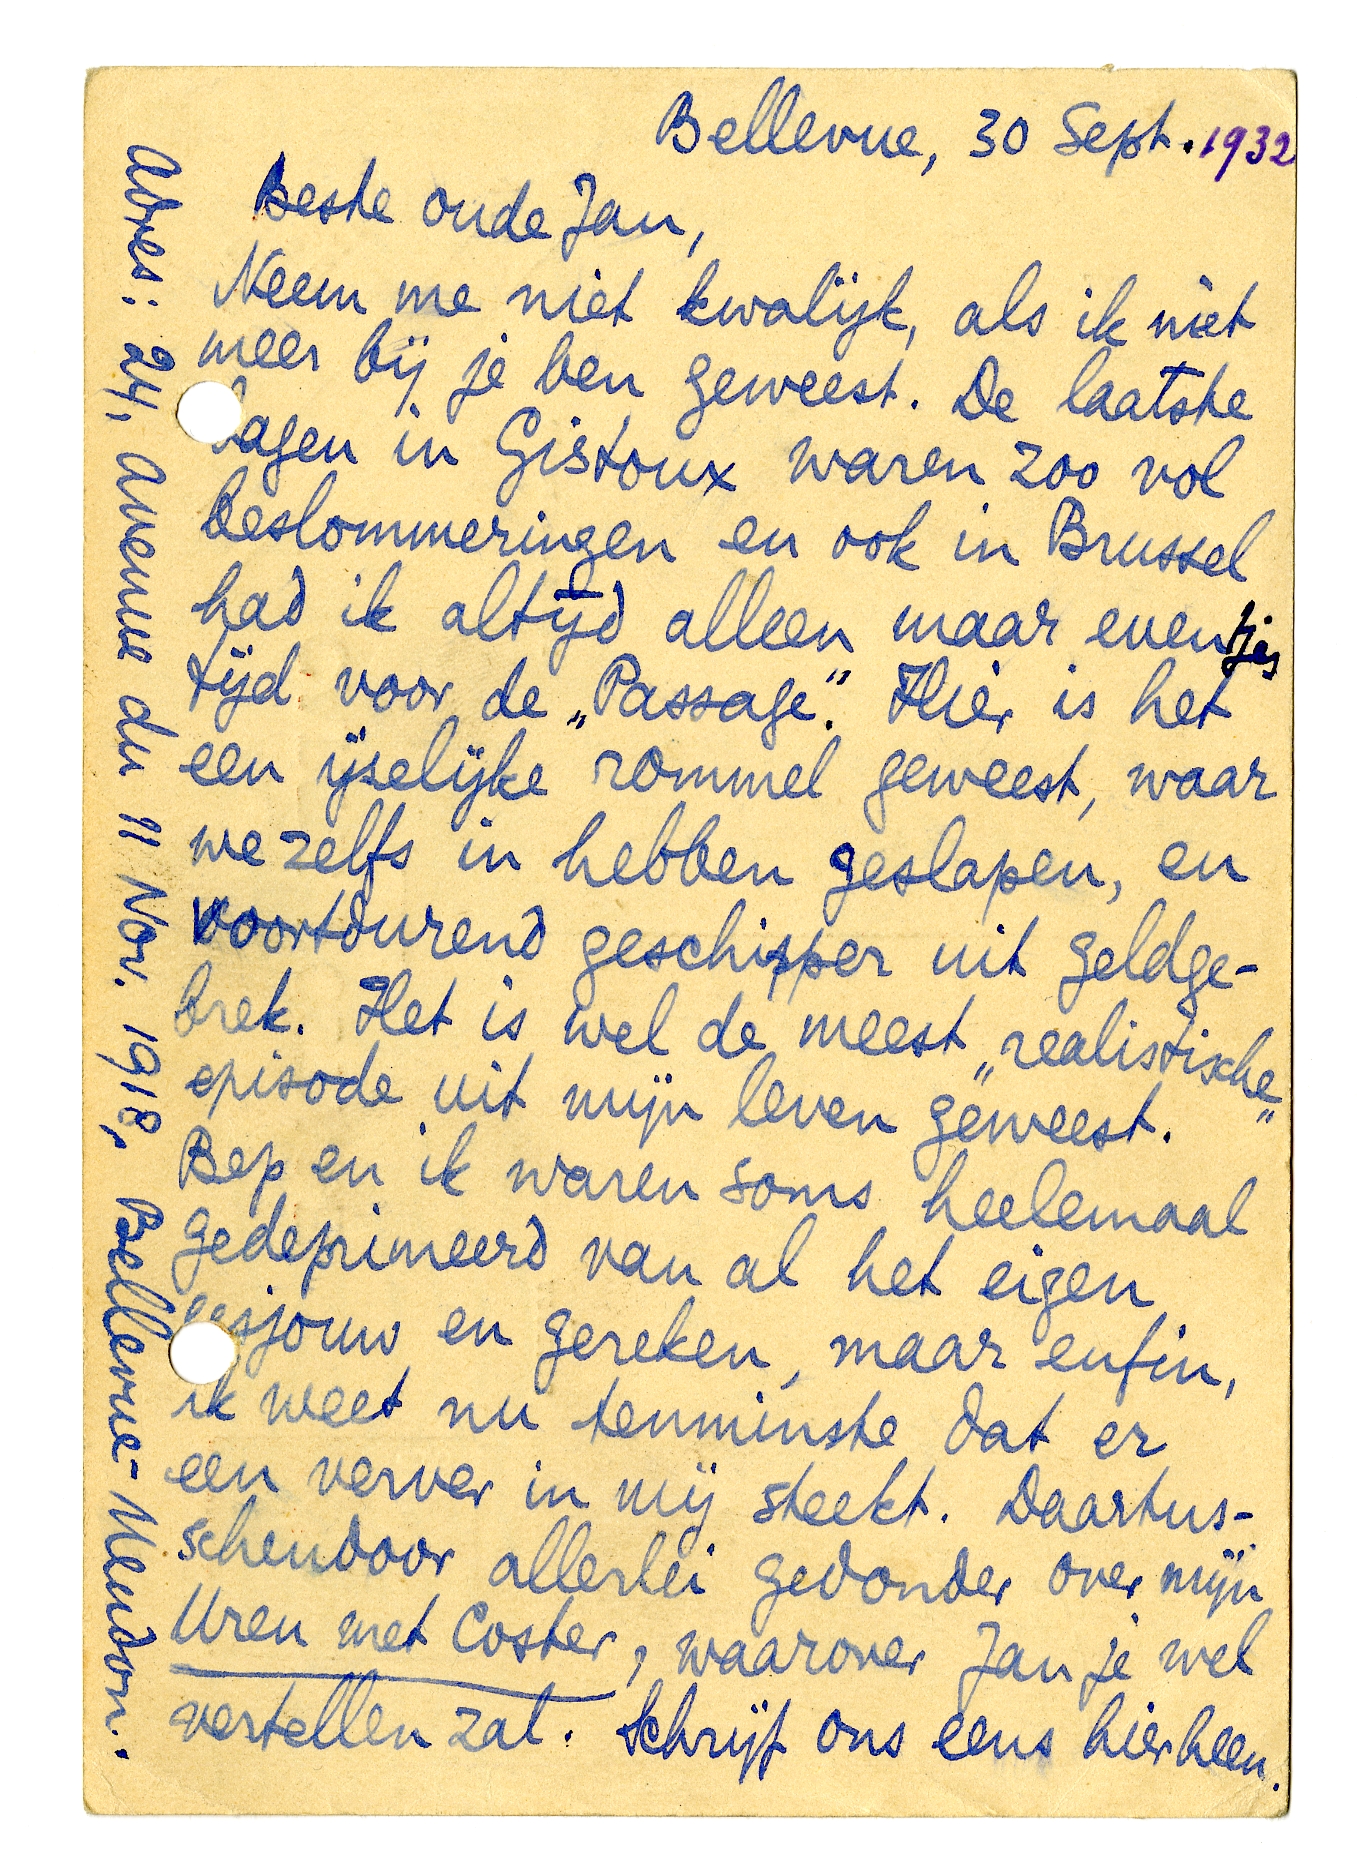 Bellevue, 30 Sept. 1932
Beste oude Jan,
Neem me niet kwalijk, als ik niet
meer bij je ben geweest. De laatste
dagen in Gistoux waren zoo vol
beslommeringen en ook in Brussel
had ik altijd alleen maar eventjes
tijd voor de „Passage”. Hier is het
een ijselijke rommel geweest, waar
we zelfs in hebben geslapen, en
voortdurend geschipper uit geldge-
brek. Het is wel de meest „realistische”
episode uit mijn leven geweest.
Bep en ik waren soms heelemaal
gedeprimeerd van al het eigen
gesjouw en gereken, maar enfin,
ik weet nu tenminste dat er
een verver in mij steekt. Daartus-
schendoor allerlei gedonder over mijn
Uren met Coster, waarover Jan je wel
vertellen zal. Schrijf ons eens hierheen.
Adres: 24, Avenue du 11 Nov. 1918, Bellevue-Meudon.